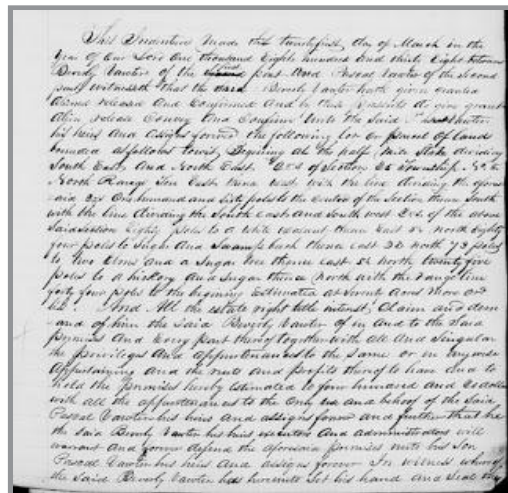 This Indenture Made this twenty first day of March in the
Year of Our Lord One thousand Eight hundred And thirty Eight between
Beverly Vawter of the first part And Pascal Vawter of the Second
part witnesseth that the Beverly Vawter hath given granted
aliened released And Confirmed And by these presents do give grant
Alien release Convey and Confirm Unto the Said Vawter
his heirs And Assigns forever the following lot or parcel of lands
bounded as follows towit, Begining at the half mile Stake dividing
South East, And North East, Qrs of Section 25 Township No
North Range Ten East thence west with the line dividing the afore
said Qrs One hundred and Sixty poles to the Centre of the Section thence South
with the line dividing the South East and South west Qrs. of the above
Said Section Eighty poles to a white thence East 5 north Eighty
four poles to Sugar And Swamp thence East 32 north 73 poles
to two Elms and a Sugar tree thence East 52 north twenty five
poles to a hickory And Sugar thence North with the range line
forty four poles to the begining Estimated at Seventy Acres More or
less. And All the estate right title interest, Claim and dem
-and of him the Said Beverly Vawter of in and to the Said
premises And Every part thereof together with all And Singular
the privileges And Appurtenances to the Same or in anywise
Appertaining and the rents and profits thereof to have and to
hold the premises hereby Estimated to four hundred and dollars
with all the appurtenances to the Only use and behoof of the Said
Pascal Vawter his heirs and assigns forever and further that he
the Said Beverly Vawter his heirs executors and administrators will
warrant and forever defend the aforesaid premises unto his Son
Pascal Vawter his heirs and assigns forever In witness whereof
the Said Beverly Vawter has hereunto Set his hand and Seal